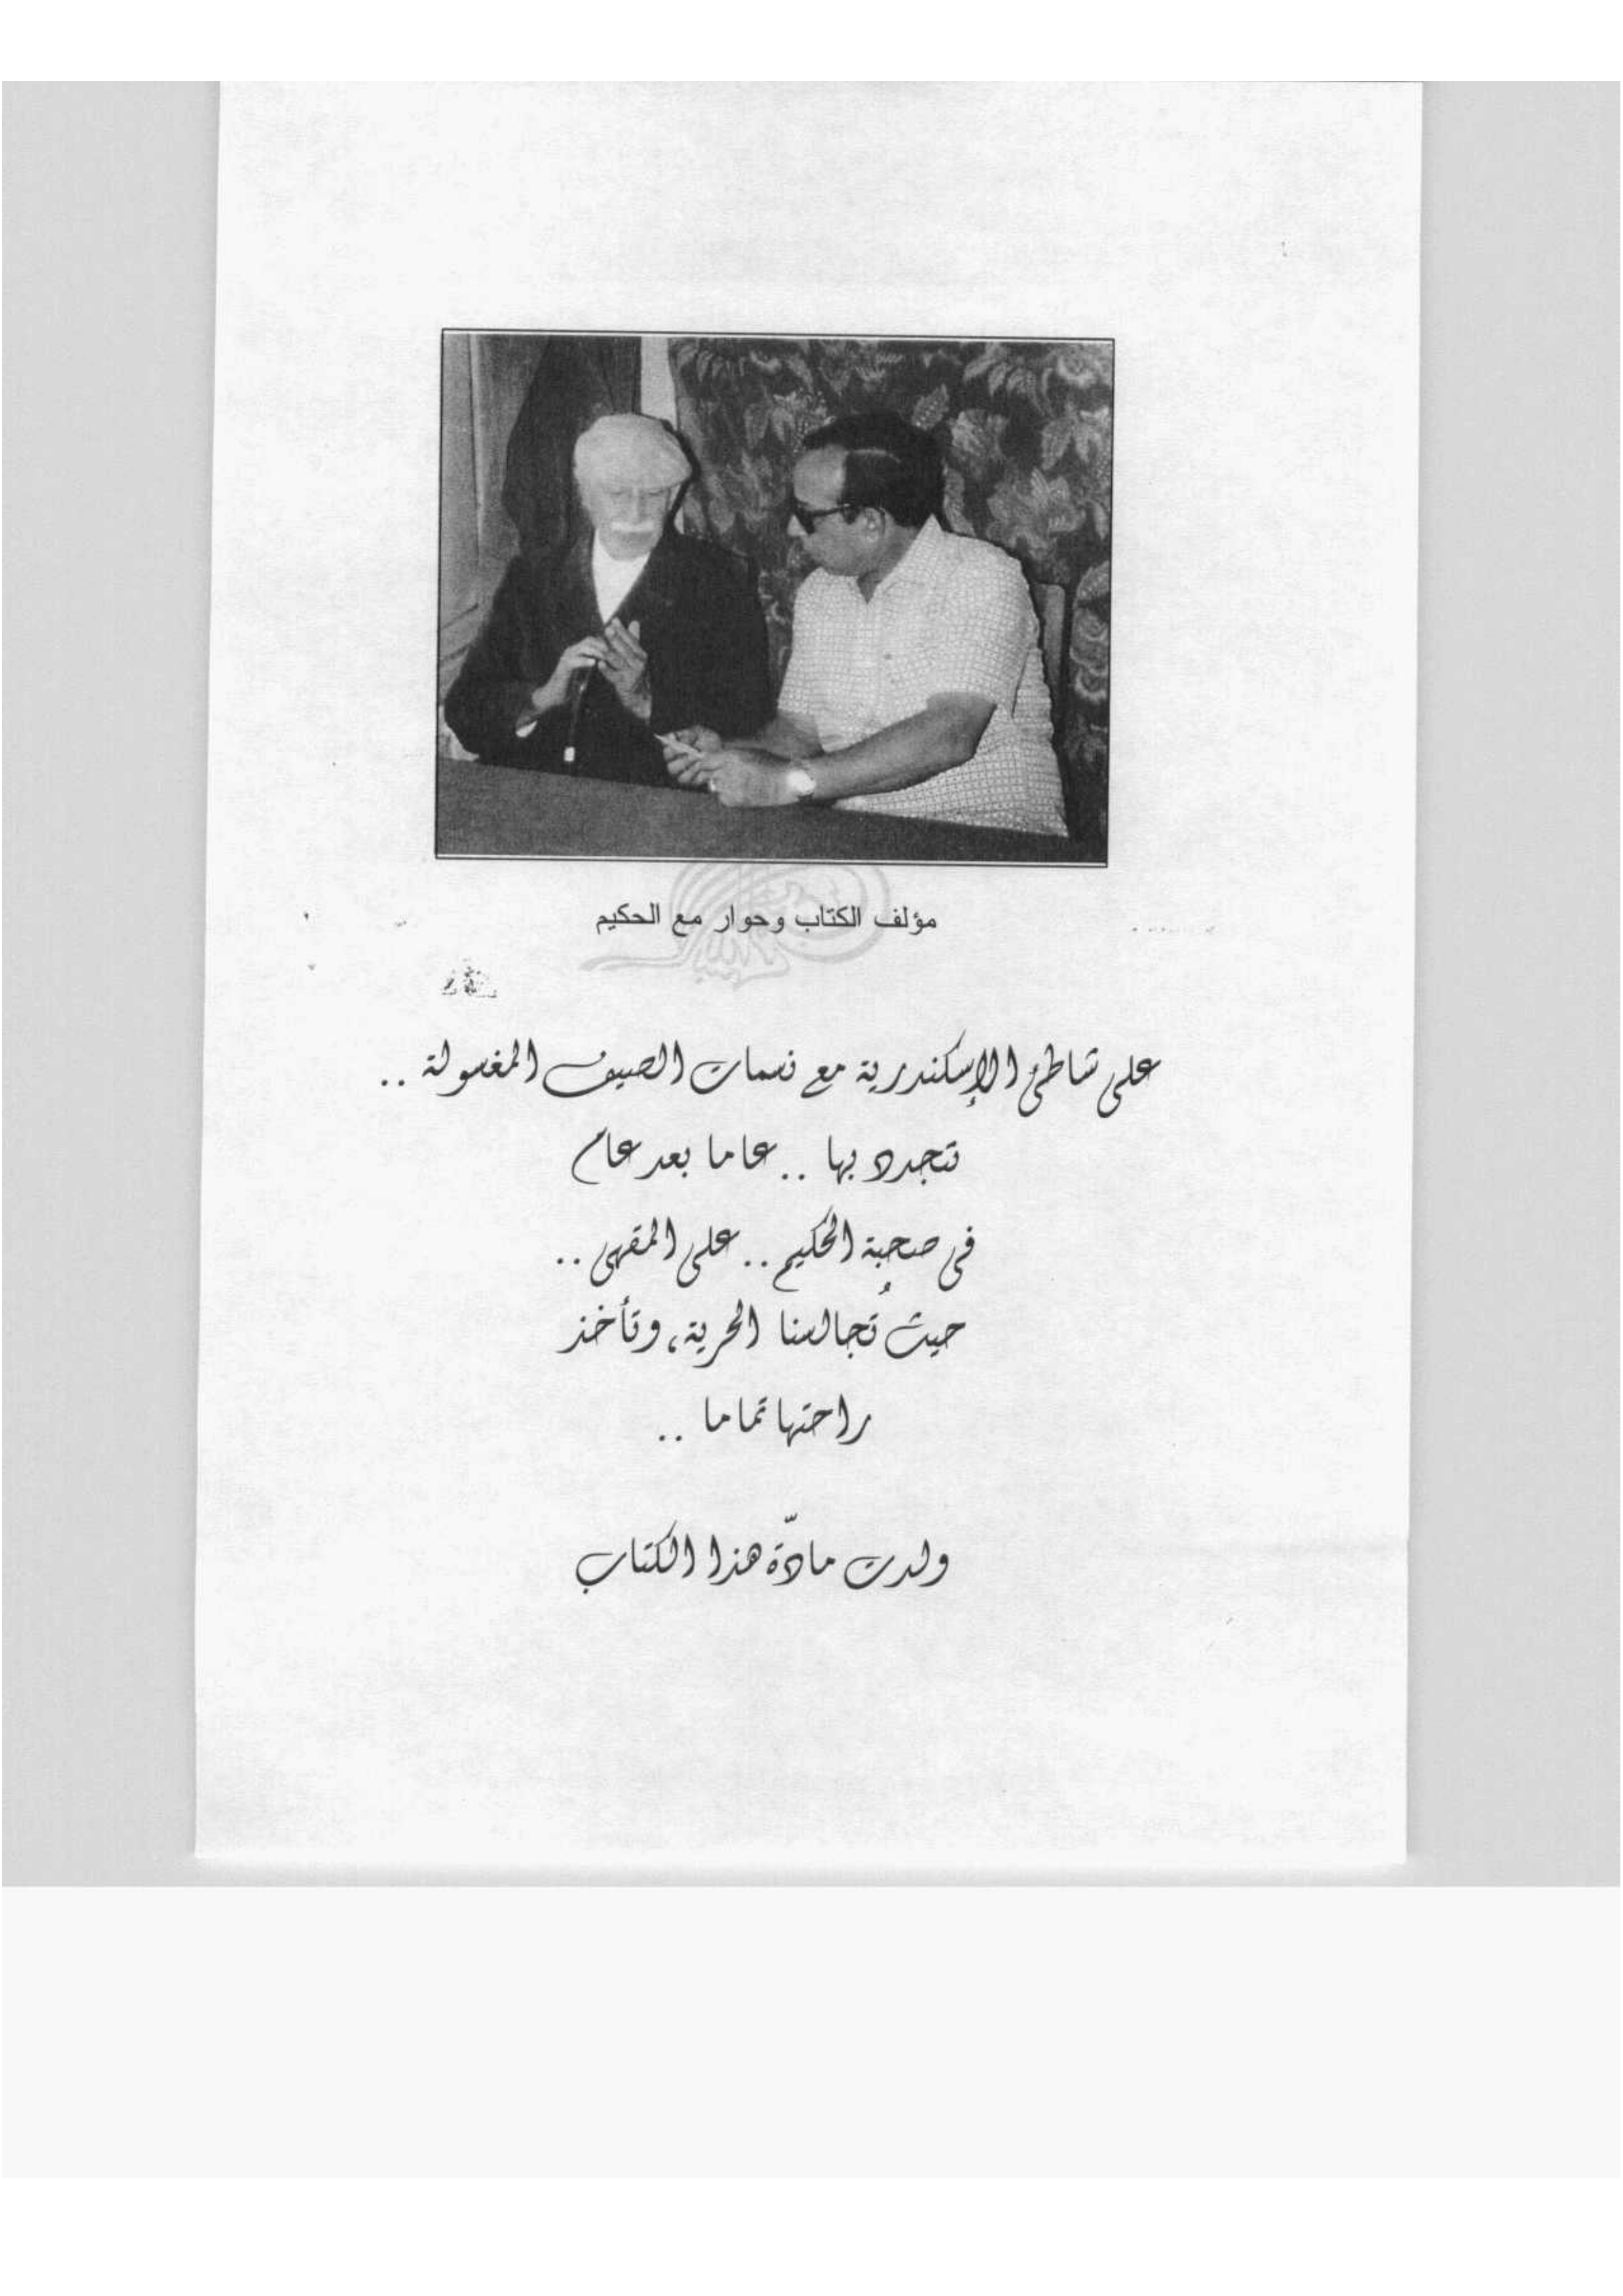 مؤلف الكتاب وحوار مع الحكيم
على شاطئ الإسكندرية مع نسمات الصيف المغسولة ..
تتجدد بها .. عاما بعد عام
فى صحبة الحكيم .. على المقهى ..
حيث تُجالسنا الحرية، وتأخذ
راحتها تماما ..
ولدت مادّة هذا الكتاب